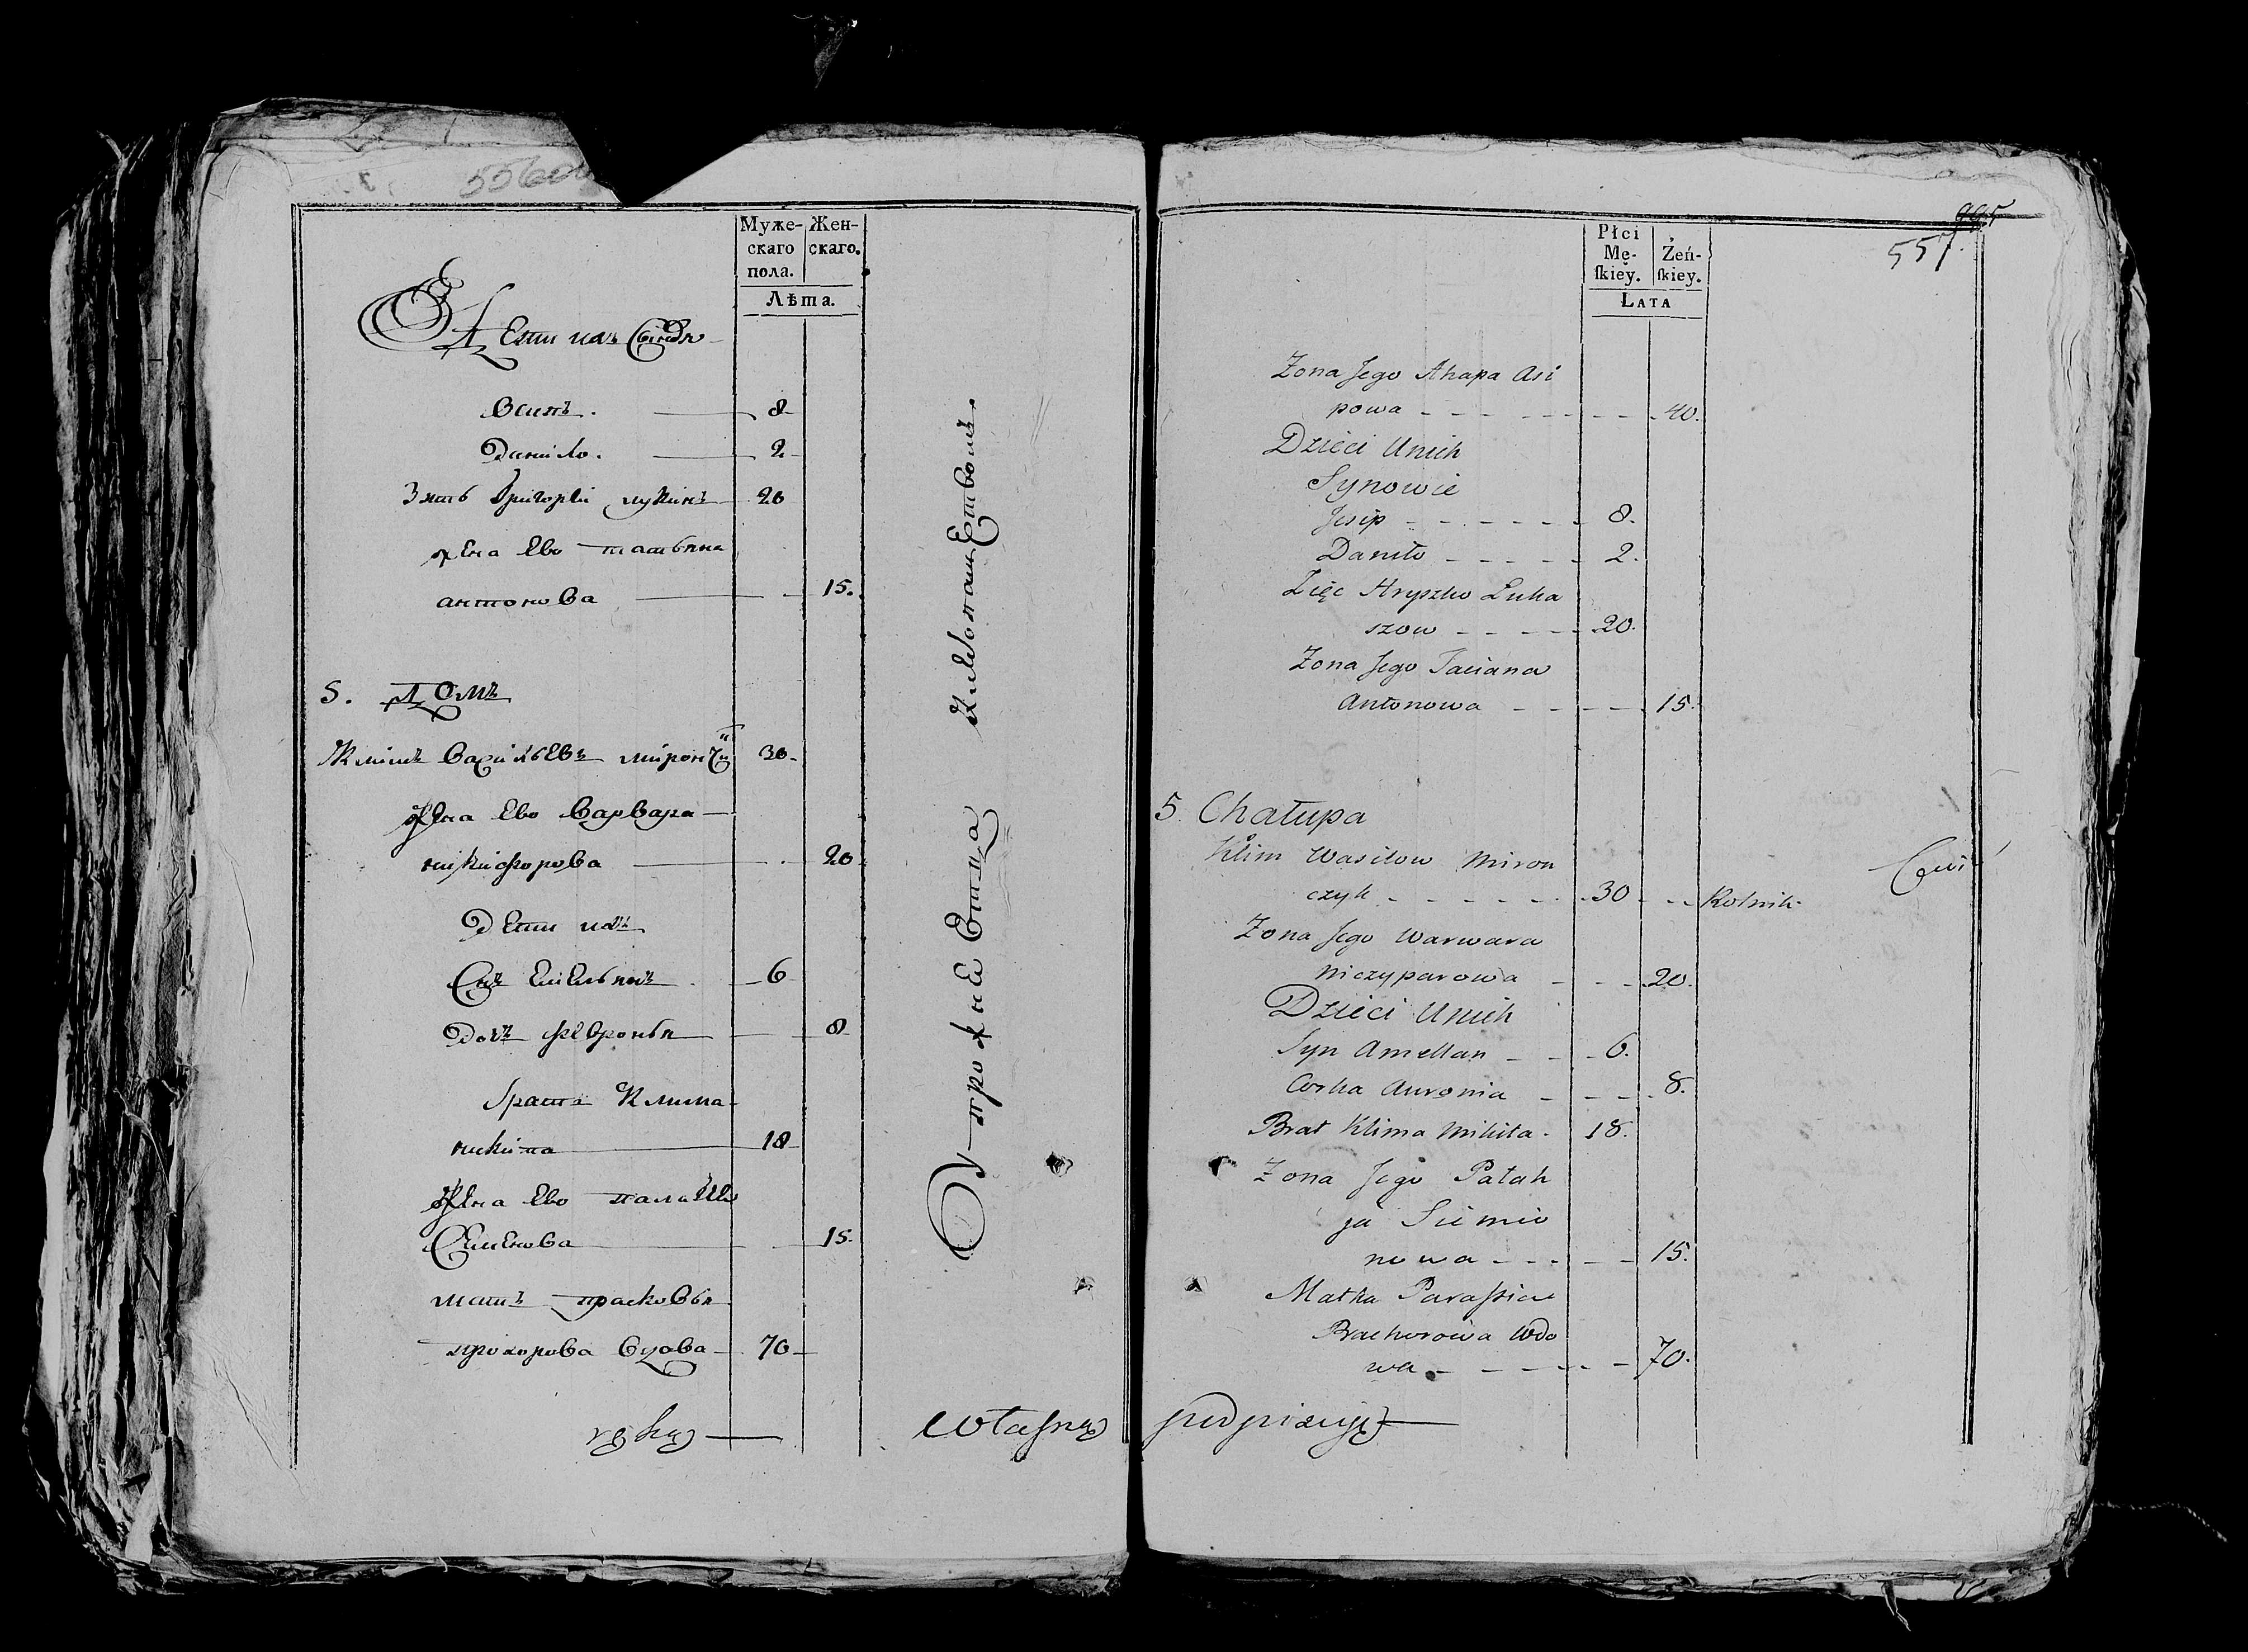 556
Муже-
скаго
пола.
Жен-
скаго.
Лѣта.
Дети ихъ Сыновя
Осипъ. 8
Данило. 2
Зять Григорей Лукинъ 20
жена Ево татьяна
антонова 15.
5. Домъ
Климъ Васильевъ мирончи 30
жена Ево Варвара
никифорова 20
Дети ихъ
Снъ Емельянъ 6
Дочь Февронья 8
братъ Клима
никита 18
жена Ево палагея
Семенова 15
мать прасковья
прохорова вдова 70
упражнеется
хлебопашествомъ.
ręką
własną podpisuję
Płci
Mę-
ſkiey.
Żeń-
ſkiey.
Lata
557.
Zona Jego Ahapa Asi
powa 40.
Dzieci Unich
Synowie
Jesip 8.
Daniło 2.
Zięc Hryszko Łuka
szow 20.
Zona Jego Taciana
Antonowa 15.
5. Chałupa
Klim Wasilow Miron
czyk 30 Rolnik
Zona Jego Warwara
Niczyparowa 20.
Dzieci Unich
Syn Amellan 6.
Corka Auronia 8.
Brat Klima Mikita 18.
Zona Jego Pałah
ja Siemio
nowa 15.
Matka Paraſkia
Prachorowa Wdo
wa 70.